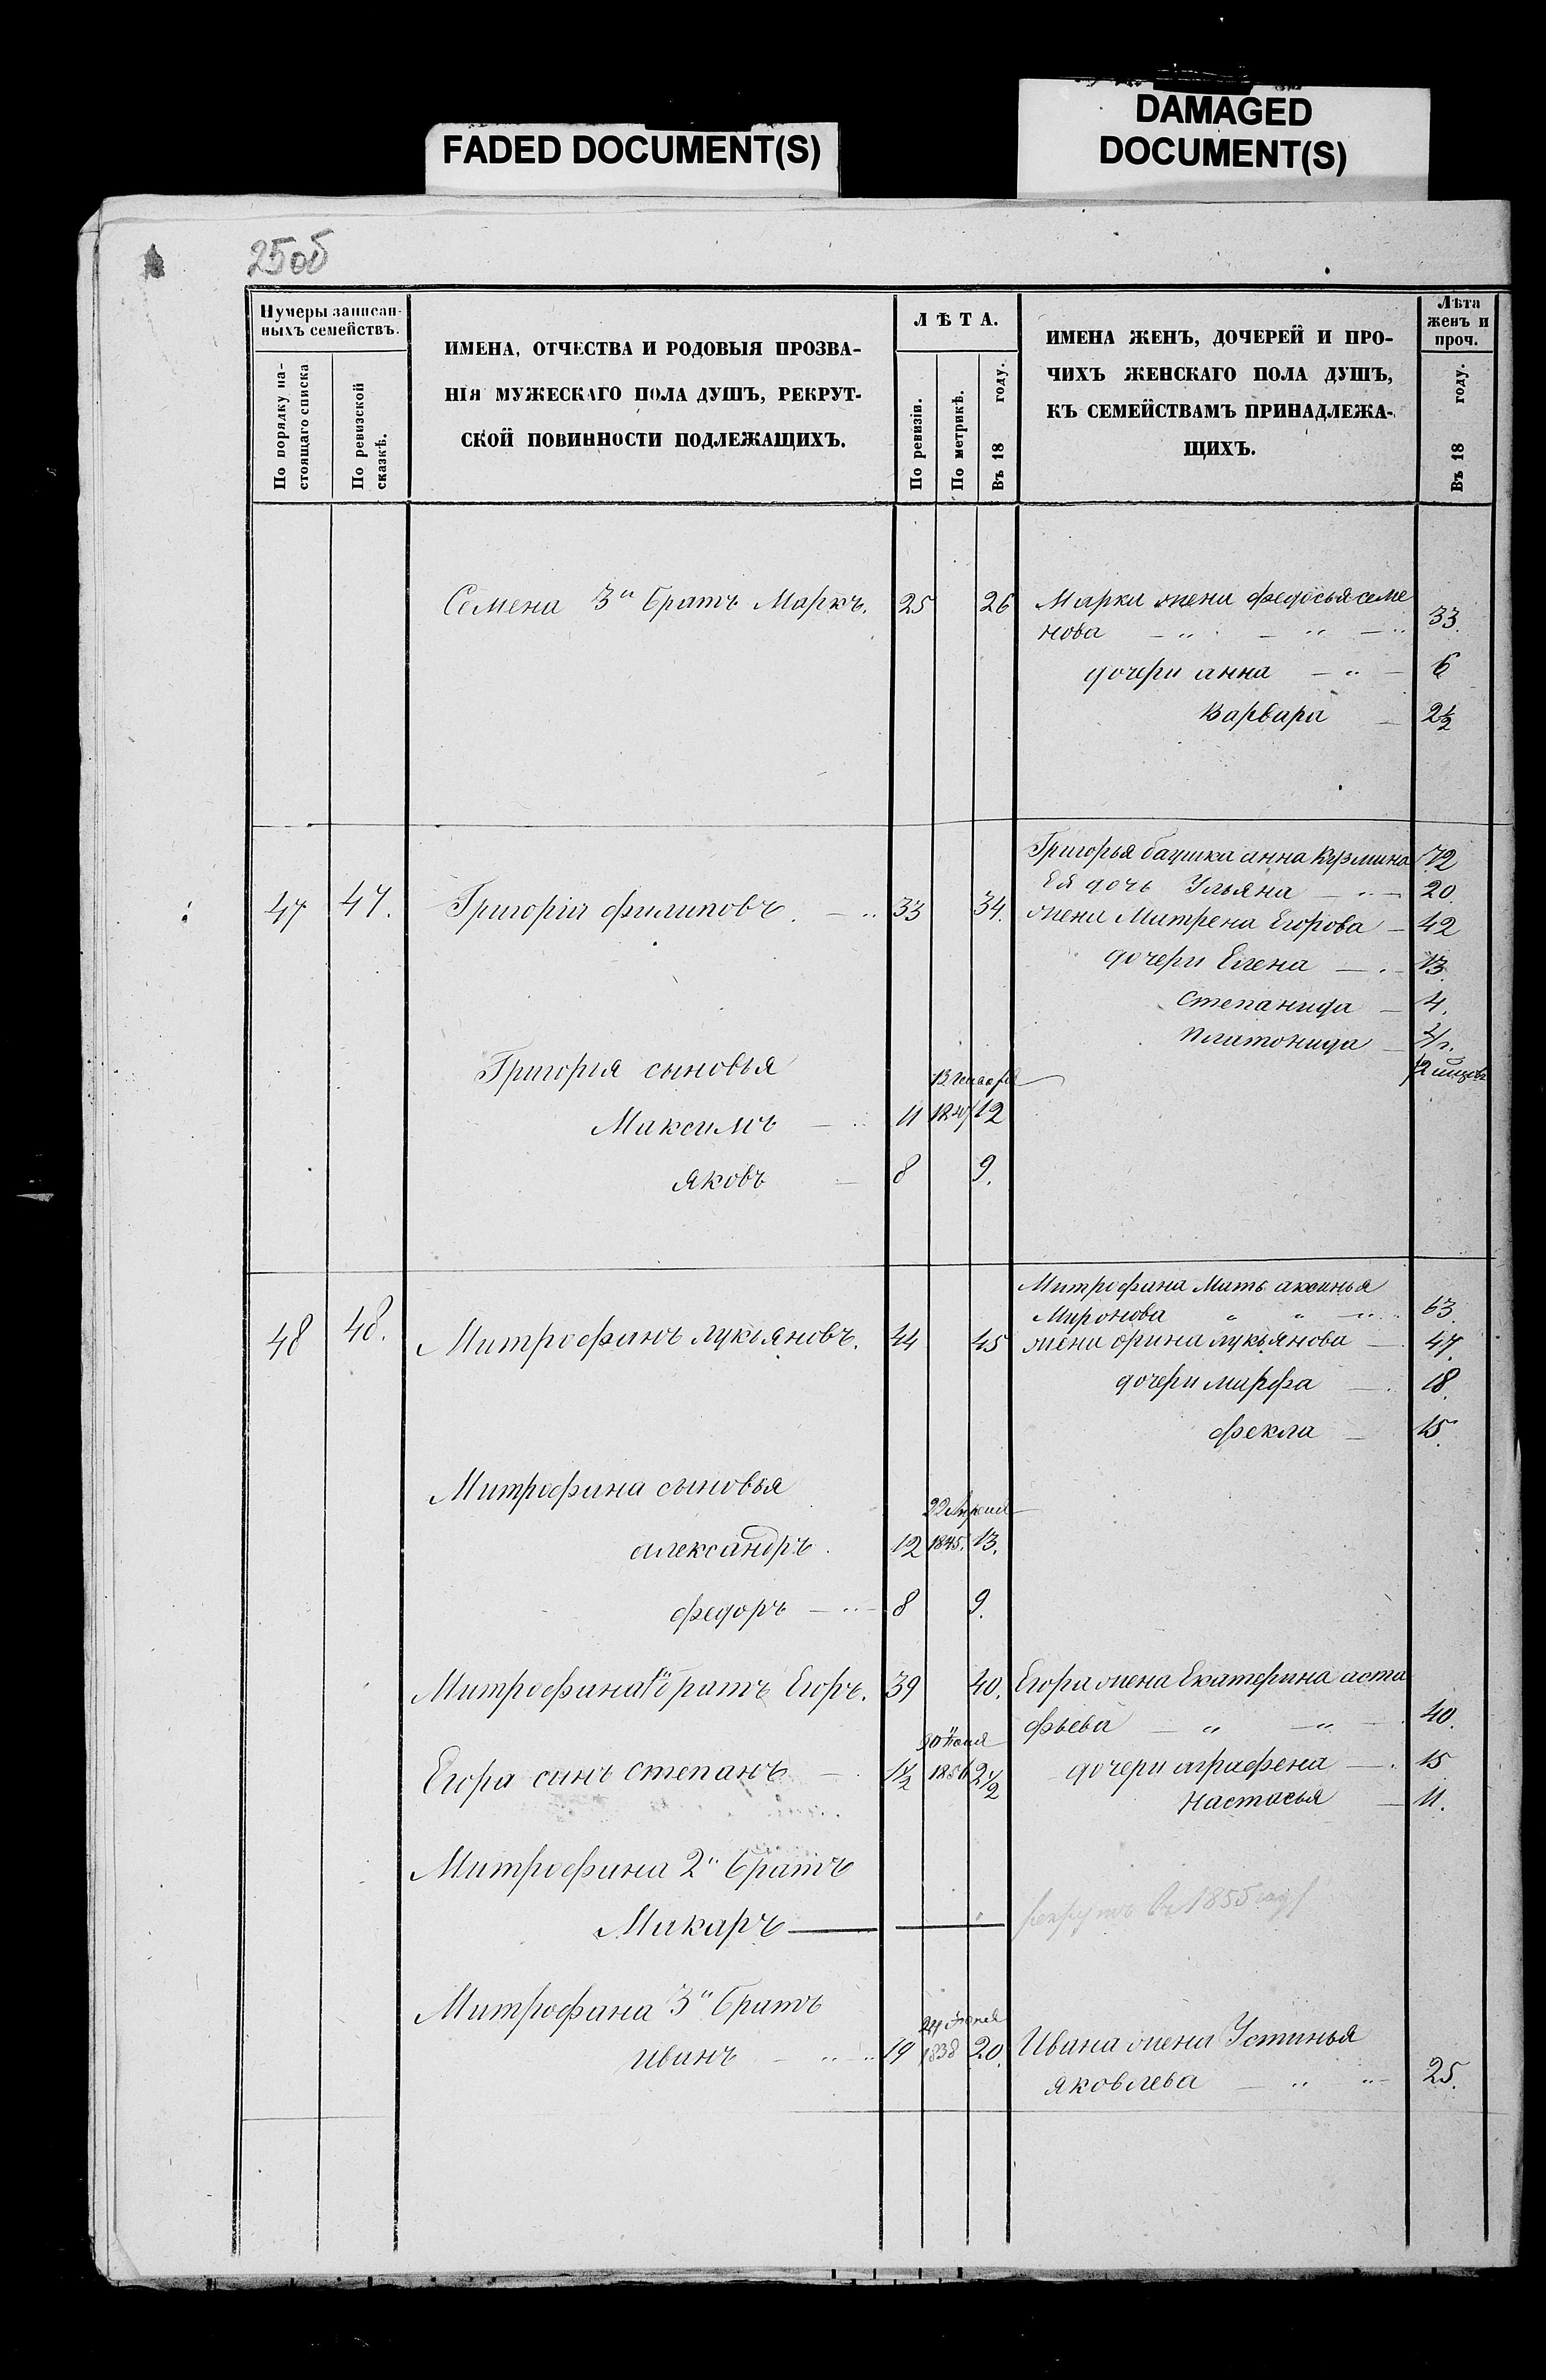 FADED DOCUMENT(S)
DAMAGED
DOCUMENT(S)
25об
Нумеры записан-
ныхъ семействъ.
По порядку на-
стоящаго списка
По ревизской
сказкѣ.
ИМЕНА, ОТЧЕСТВА И РОДОВЫЯ ПРОЗВА-
НІЯ МУЖЕСКАГО ПОЛА ДУШЪ, РЕКРУТ-
СКОЙ ПОВИННОСТИ ПОДЛЕЖАЩИХЪ.
ЛѢТА.
По ревизіи.
По метрикѣ.
Въ 18 году.
ИМЕНА ЖЕНЪ, ДОЧЕРЕЙ И ПРО-
ЧИХЪ ЖЕНСКАГО ПОЛА ДУШЪ,
КЪ СЕМЕЙСТВАМЪ ПРИНАДЛЕЖА-
ЩИХЪ.
Лѣта
женъ и
проч.
Въ 18 году.
Семена 3й братъ Маркъ. 25 26 Марка жена федосья семе
нова 33.
дочери анна 6
Варвара 2½
Григорья баушка анна Кузмина 72
Ея дочь Ульяна 20.
47 47. Григорій филиповъ. 33 34. жена Матрена Егорова 42
дочери Елена 13.
Степанида 4.
Платонида
Григорія сыновья
13 Генваря
Максимъ 11 1847 12
яковъ 8 9.
Митрофана Мать аксинья
Миронова 63.
48 48. Митрофанъ лукьяновъ. 44 45 жена орина лукьянова 47.
дочери марфа 18.
фекла 15.
Митрофана сыновья
22 Апреля
александръ. 12 1845. 13.
федоръ 8 9.
Митрофана братъ Егоръ. 39 40. Егора жена Екатерина аста
фьева 40.
Егора сынъ степанъ 1½ 1856 2½ дочери аграфена 15
настасья 11.
Митрофана 2й братъ
Макаръ
рекрутъ въ 1855 году
Митрофана 3й братъ
иванъ 19 1838 20. Ивана жена Устинья
яковлева 25.